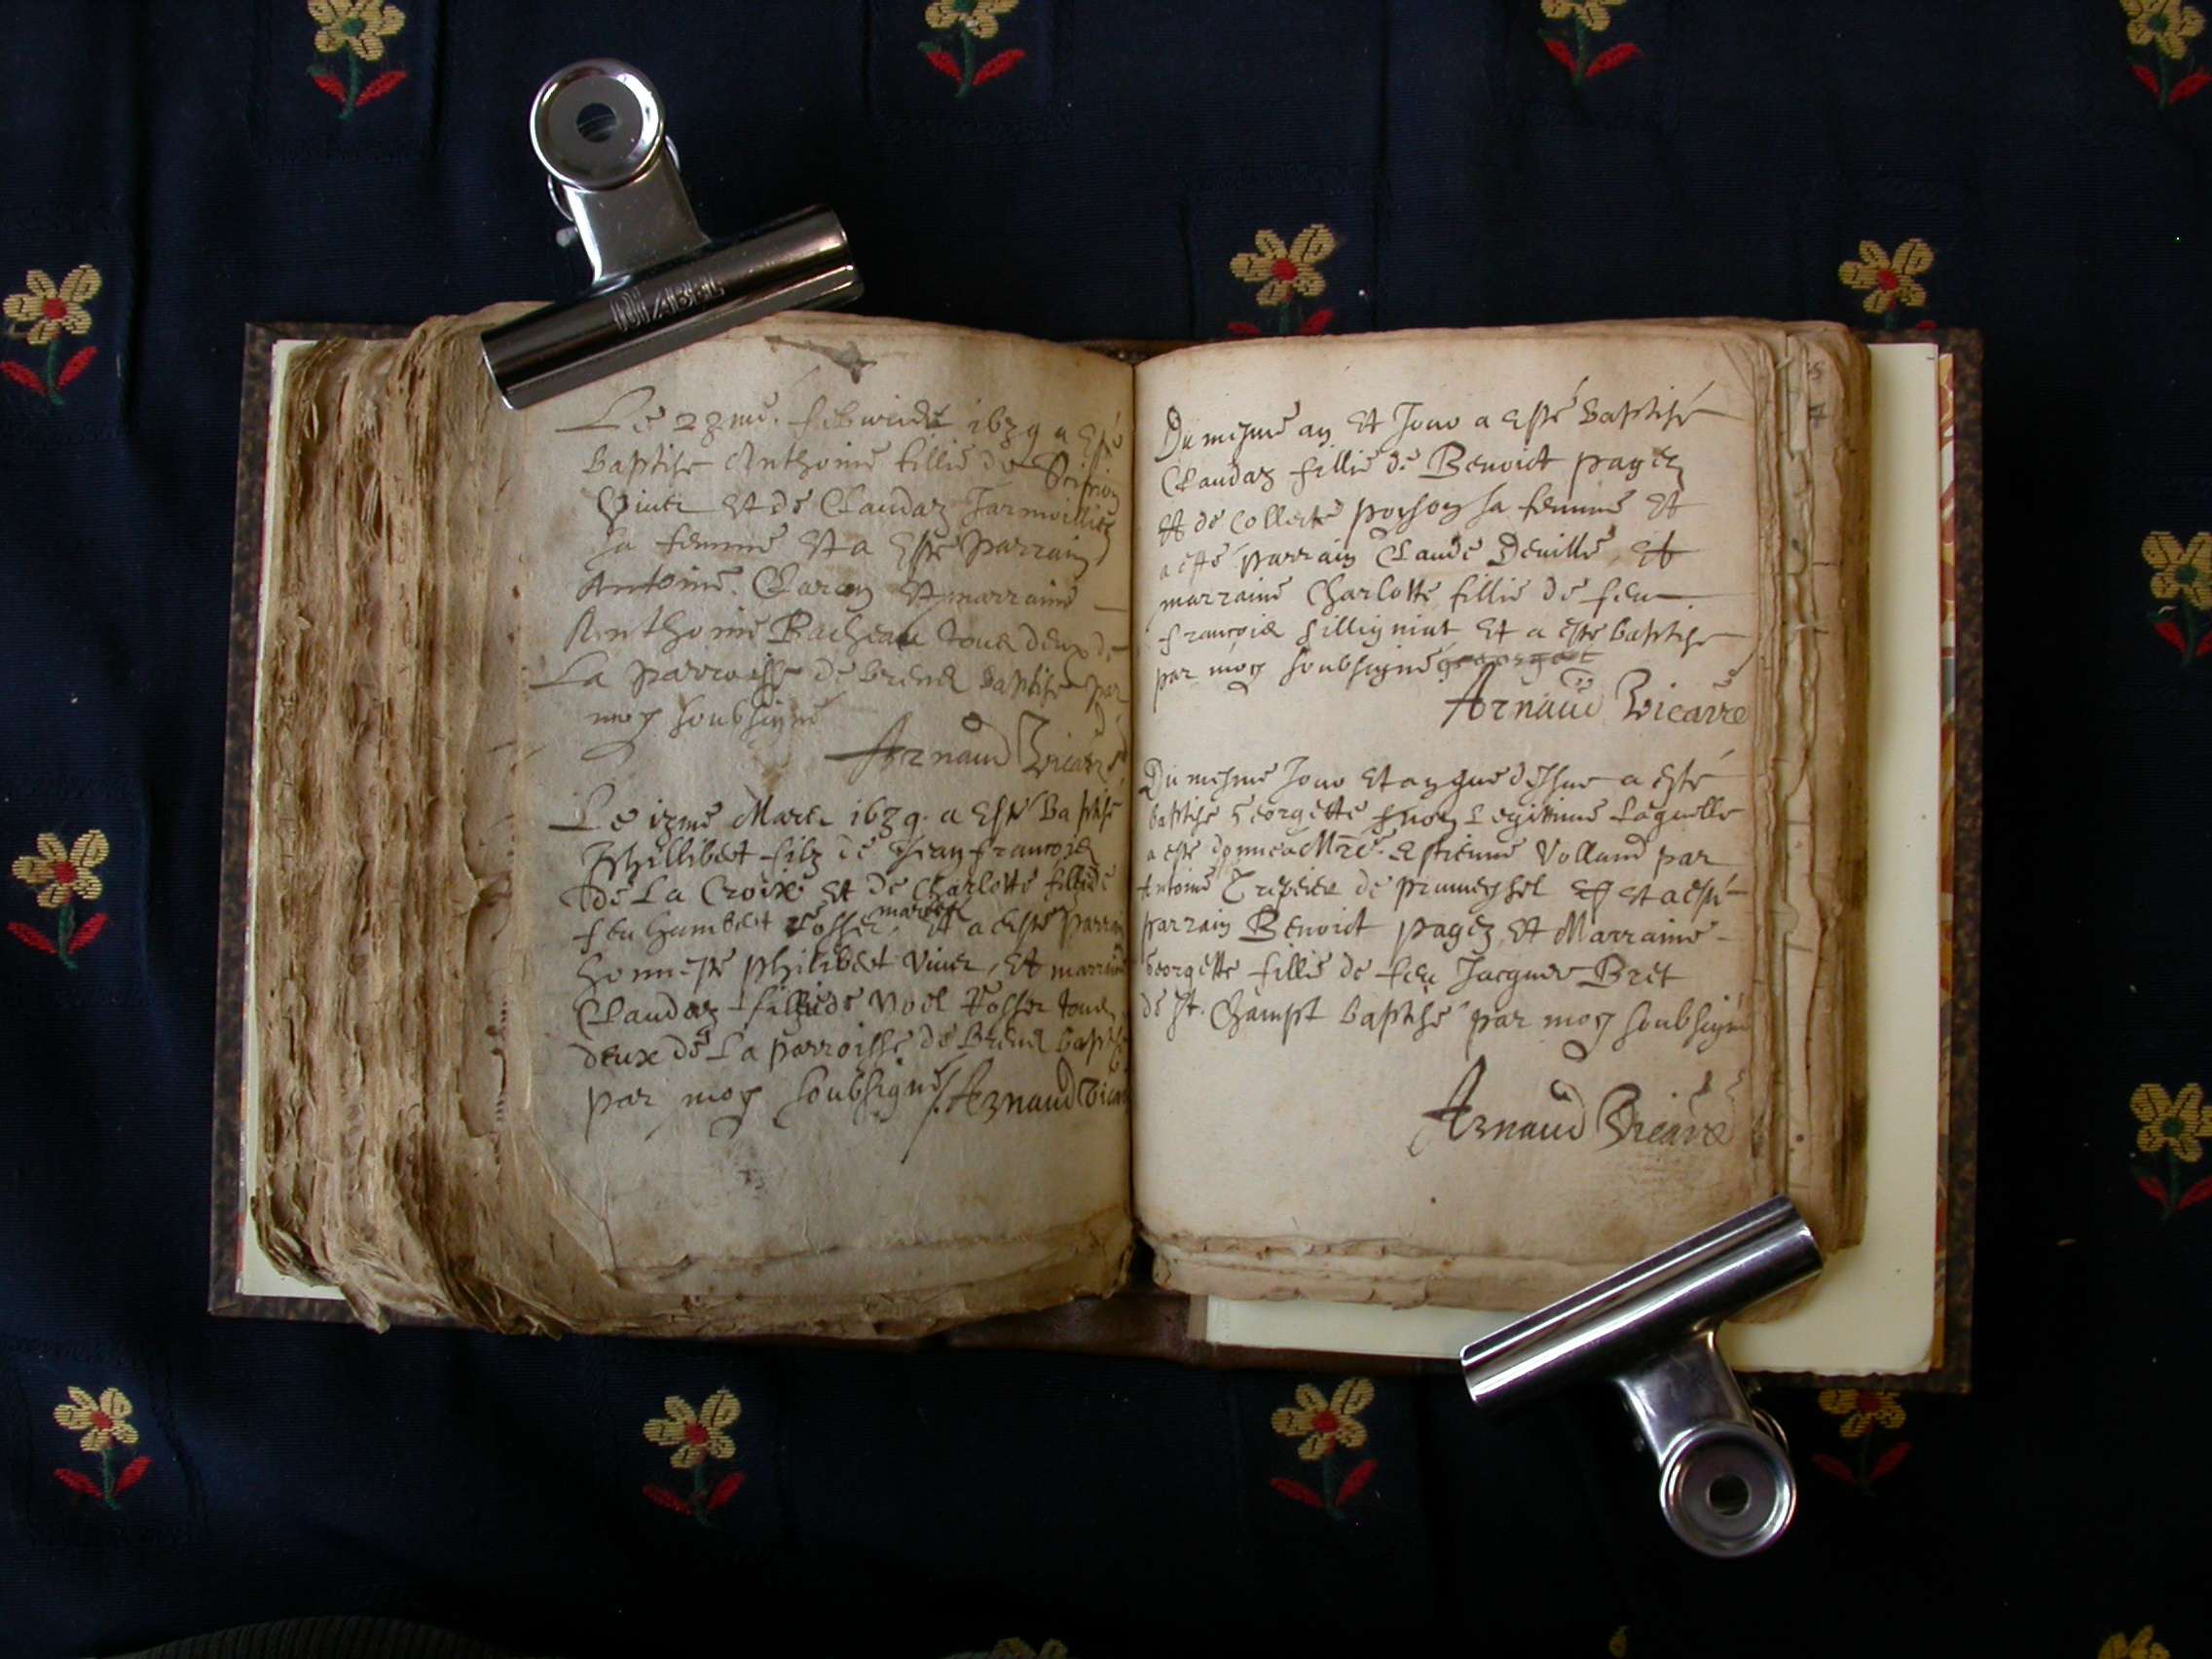 DIABEL
Le 22me. febvrier 1639 a esté
baptise Anthoine fillie de
Vivier et de Claudaz
sa femme et a esté parrain
Antoine et marraine
Anthoine Bacheau tous deux de
La parroisse de brens baptise par
moy soubsigné
Arnaud Vicaire
Le me Mars 1639. a esté baptisé
Phillibert filz de Jean francois
de La Croix et de Charlotte fillie de
feu humbert et a esté parrain
honneste philibert Vivier, et marraine
Claudaz fillie de Noel tous
deux de La parroisse de Brens baptisé
par moy soubsigné Arnaud Vicai
Du mesme an et Jour a esté baptisé
Claudaz fillie de Benoict pagez
et de Collette sa femme et
a esté parrain Claude Deville, et
marraine Charlotte fillie de feu
francois et a esté baptisé
par moy soubsigné
Arnaud Vicaire
Du mesme Jour et an que dessus a esté
baptisé Georgette non Legitime Laquelle
a esté donnée a Mre. Estienne Volland par
Antoine de et a esté
parrain Benoict pagez et Marraine
Georgette fillie de feu Jacques Bret
de St. Champt baptisé par moy soubsigné
Arnaud Vicaire